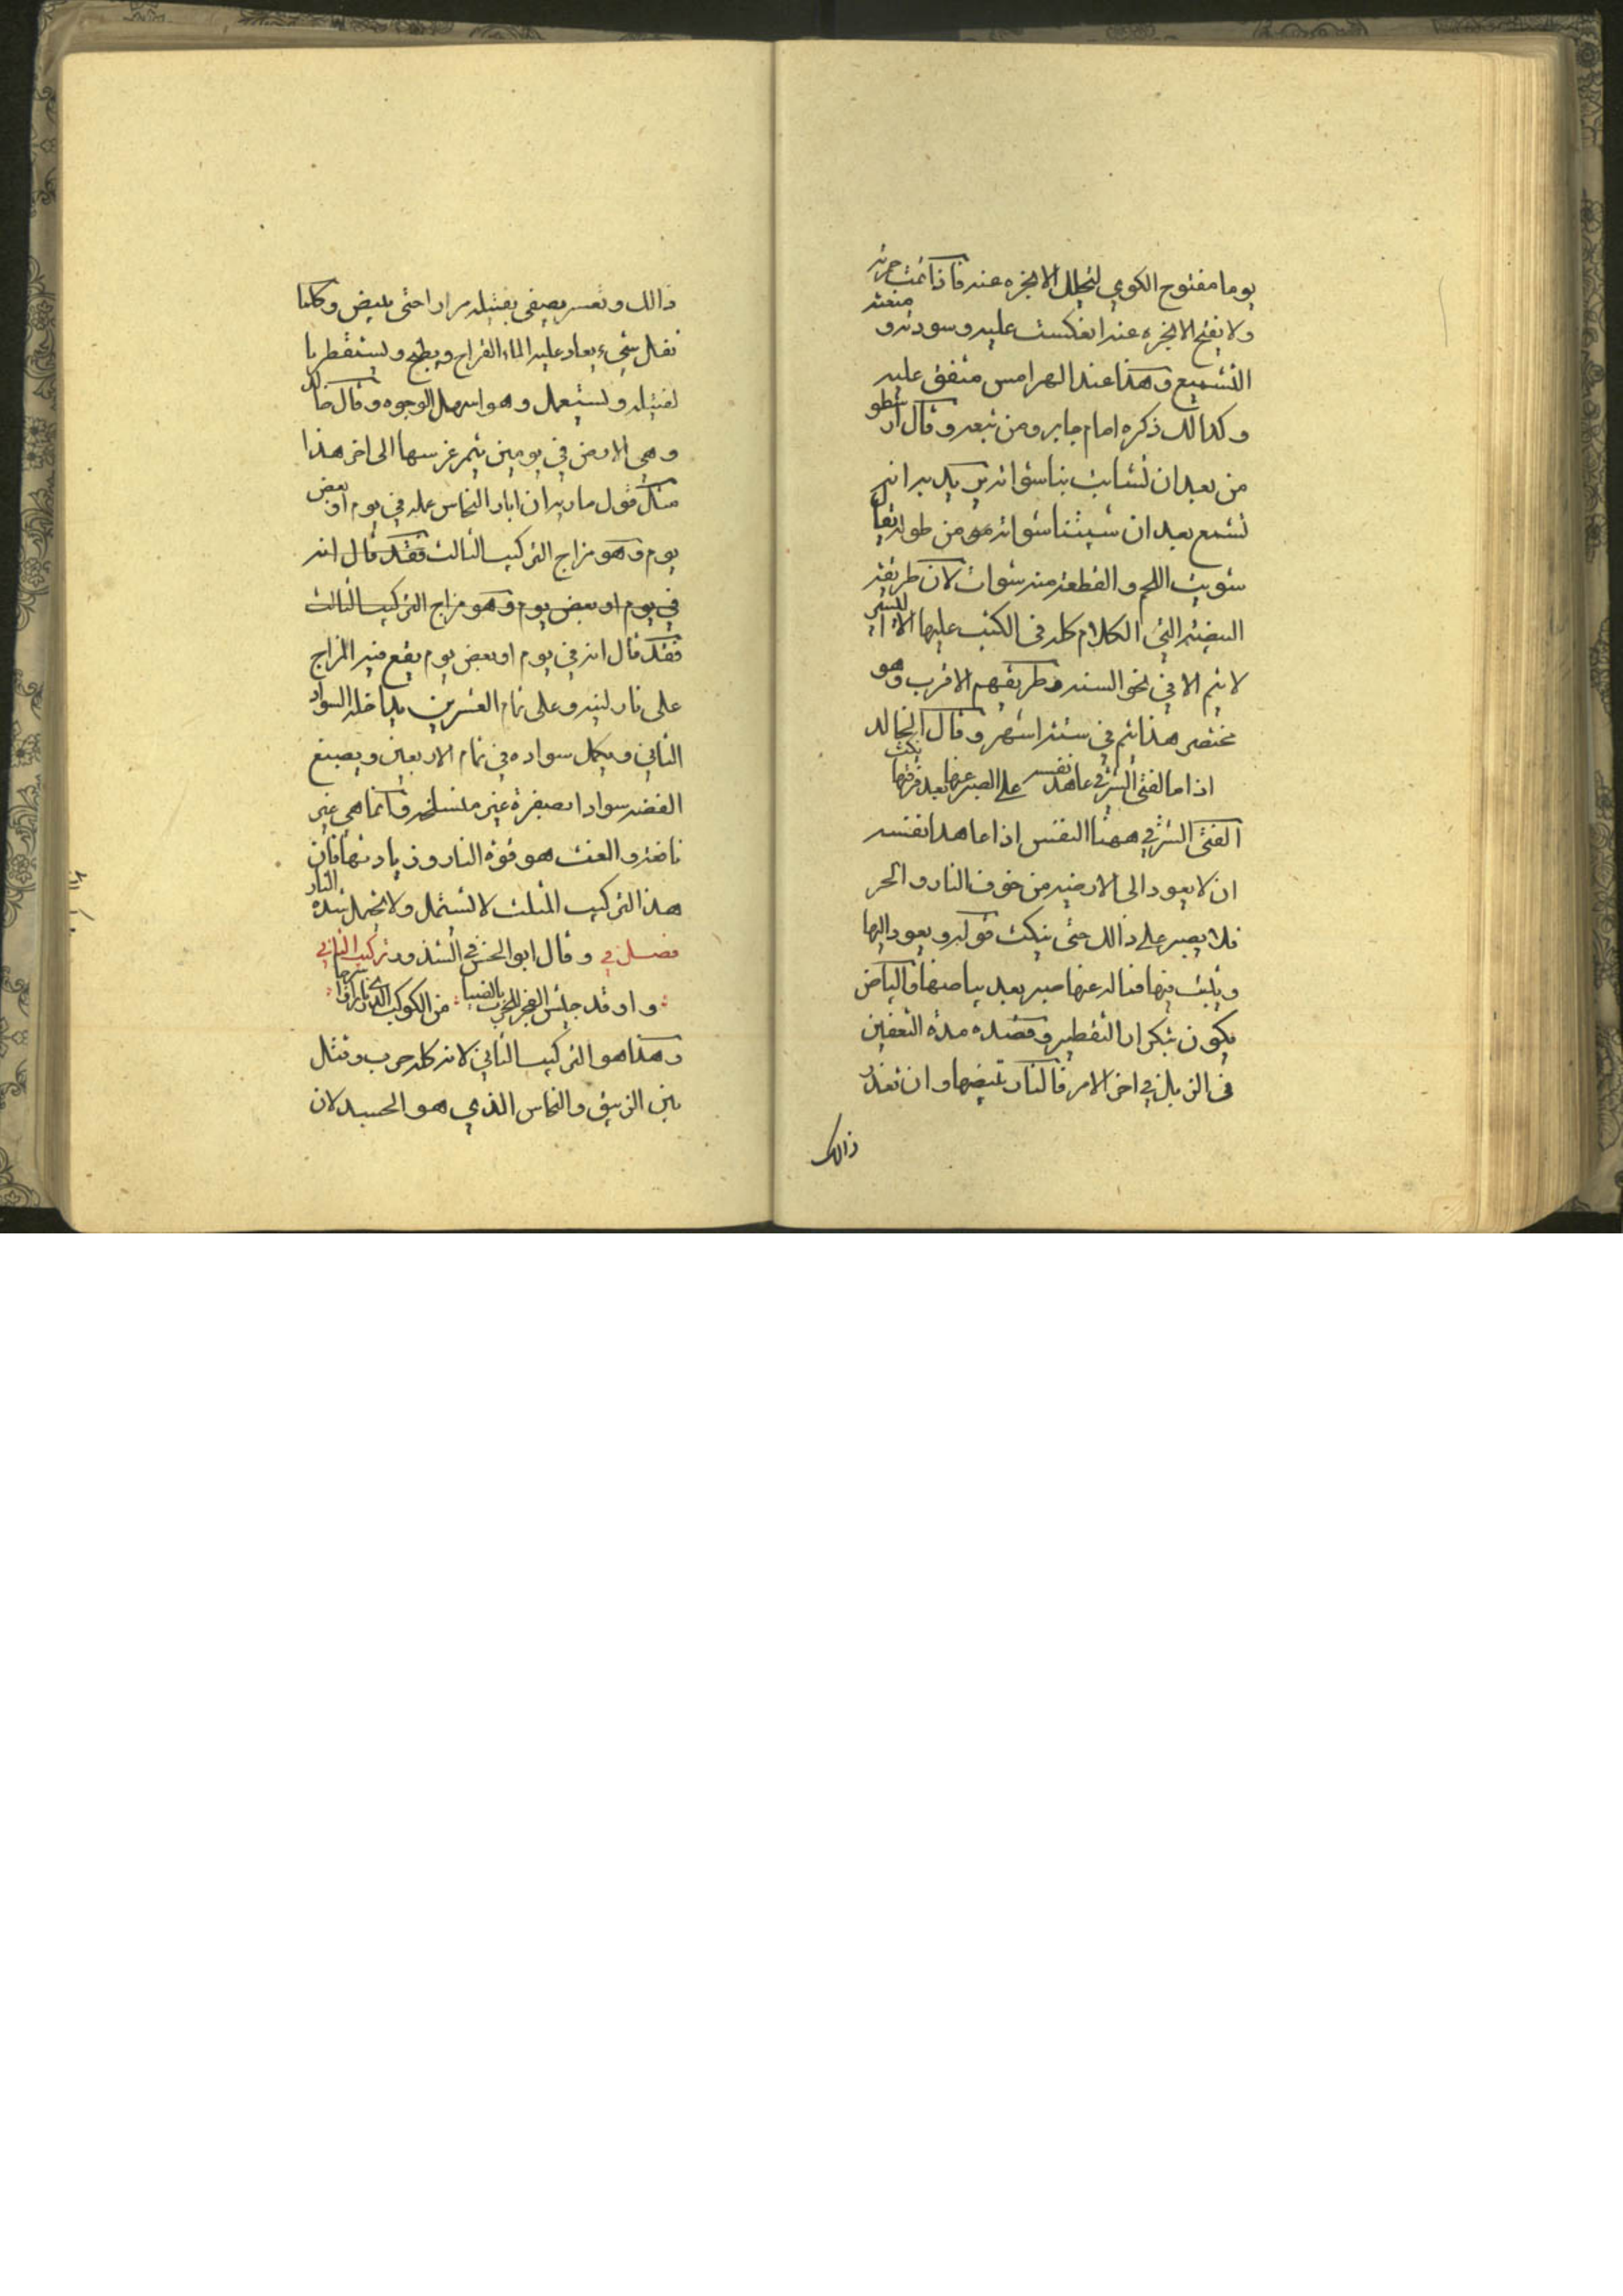 يوما مفتوح الكوي لتحلل الابخره عنه فاذا تمت حرته
ولا يفتح الابخره عنه انعكست عليه وسودته و منعته
التشميع وهذا عند الهرامس متفق عليه
وكذالك ذكره امام جابر ومن تبعه وقال ارسطو
من بعد ان نشابت بنا سواته يريد به انه
تشمع بعد ان شيبتنا سواته هو من طوله يقال
شويت اللحم والقطعة منه شوات لان طريقة
البيضية التي الكلام كله في الكتب عليها الا اليسير
لا يتم الا في نحو السنة وطريقهم الاقرب وهو
مختصر هذا يتم في ستة اشهر وقال الخالد
اذا ما الفتى الشرقي عاهد نفسه على الصبر عنها بعد فرقتها نكث
الفتى الشرقي ههنا النفس اذا عاهد انفسه
ان لا يعود الى الارضيه من خوف النار والحر
فلا يصبر على ذالك حتى ينكث قوله ويعود اليها
ويلبث فيها فماله عنها صبر بعد بياضها فالبياض
يكون بتكرار التقطير وقصده مدة التعفين
في الزبل في اخر الامر فالنار تبيضها وان تعذر
ذالك
ذالك وتعسر يصفى بفتيله مرارا حتى يبيض وكلما
تفل شيء يعاد عليه الماء القراح ويطبخ ويستقطر با
لفتيله ويستعمل وهو اسهل الوجوه وقال خالد
وهي الارض في يومين يثمر غرسها الى اخر هذا
مثل قول ماريه ان ابار النحاس عمله في يوم او بعض
يوم وهو مزاج التركيب الثالث فقد قال انه
في يوم او بعض يوم وهو مزاج التركيب الثالث
فقد قال انه في يوم او بعض يوم يقع فيه المزاج
على نار لينه وعلى تمام العشرين يداخله السواد
الثاني ويكمل سواده في تمام الاربعين ويصبغ
الفضه سوادا بصفرة غير منسلخه فانما هي غير
ناضجه والعنت هو قوة النار وزيادتها فان
هذا التركيب المثلث لا تشتمل ولا يحمل شدة النار
فصل في وقال ابو الحسن في الشذور تركيب الثاني
واوقد جليس الفجر للحرب بالضيا من الكوكب الدري نارا
وهذا هو التركيب الثاني لانه كله حرب وقتال
بين الزيبق والنحاس الذي هو الجسد لان